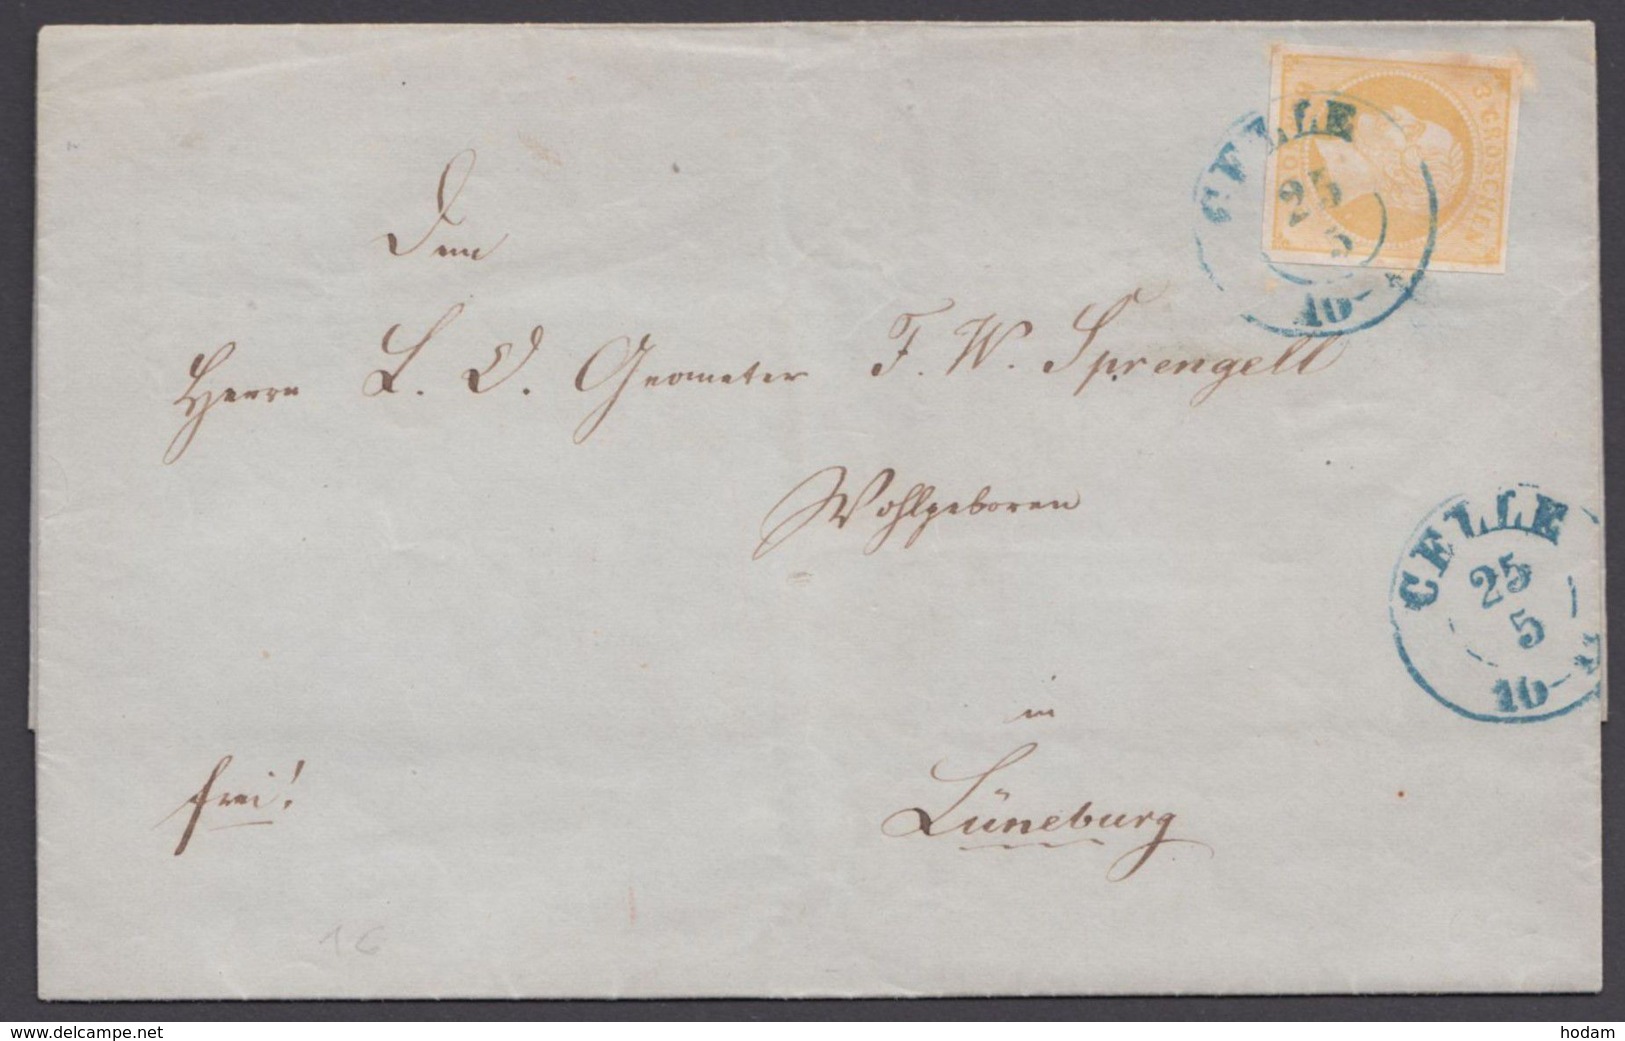 3 GROSCHEN
CELLE
25
5
10-
Dem
Herrn L. O. Geometer F. W. Sprengell
Wohlgeboren
CELLE
25
5
10-
in
frei!
Lüneburg
www.delcampe.net
hodam